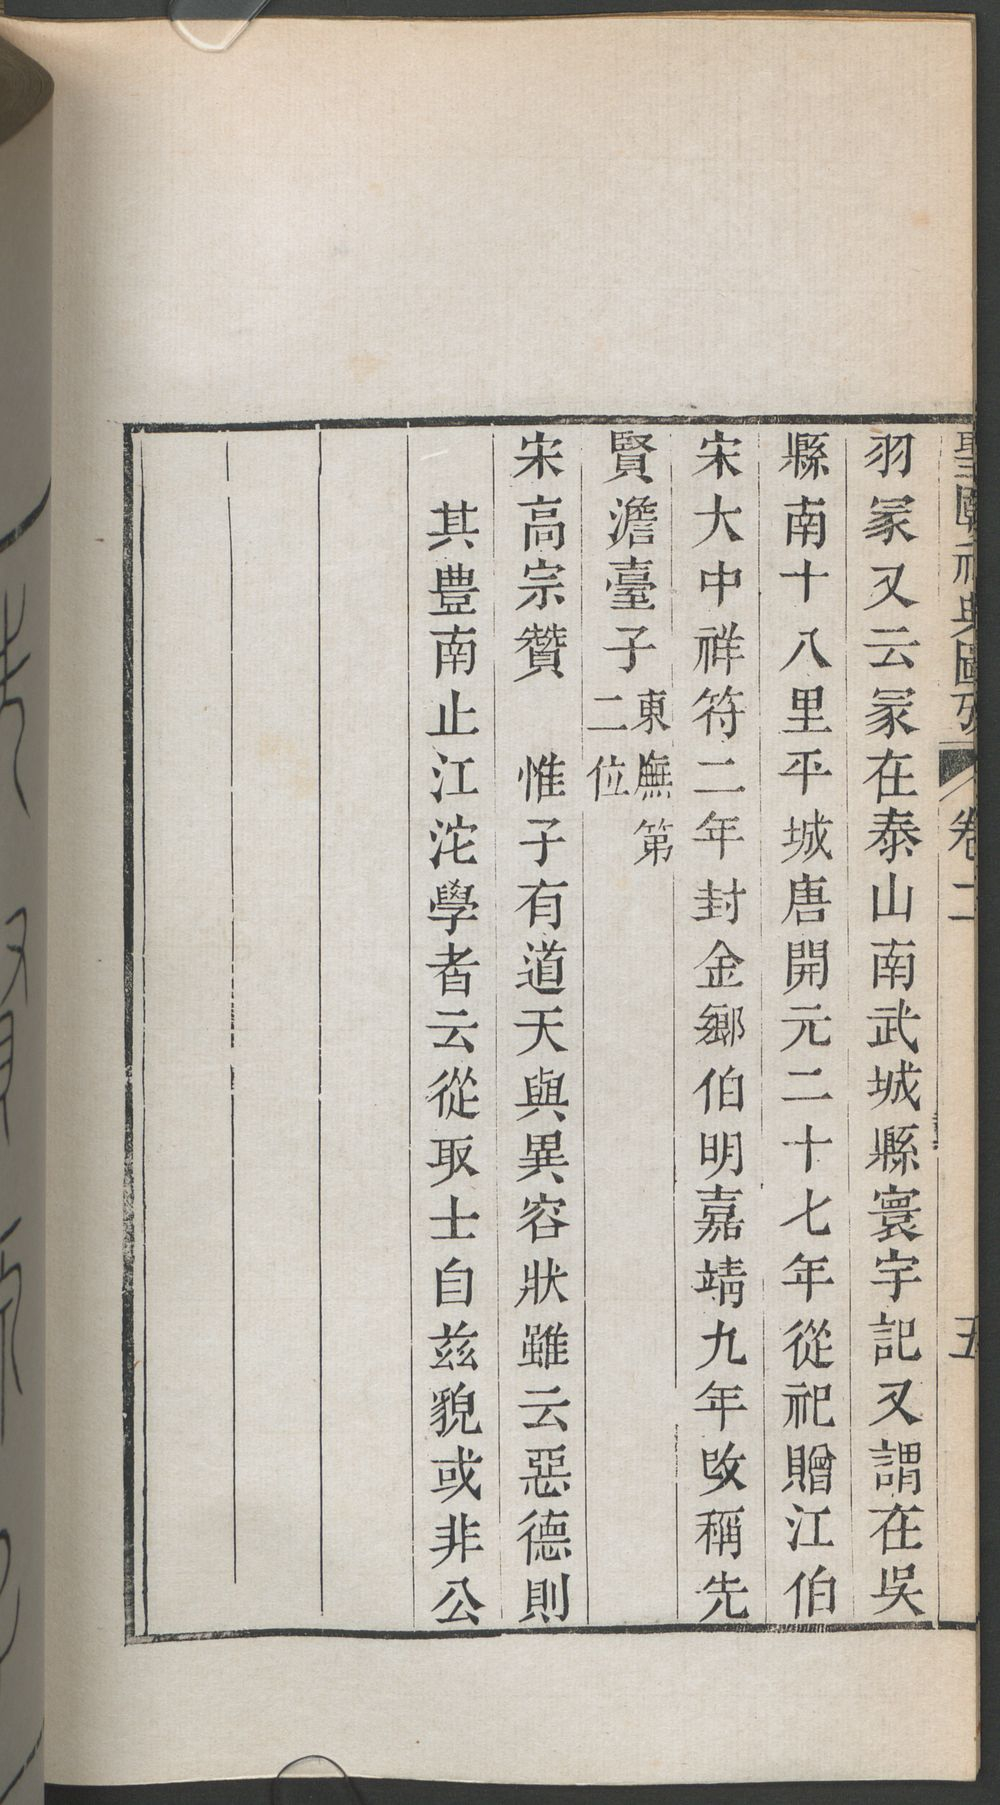 聖賢祀典圖考
卷二
五
羽冢又云冢在泰山南武城縣寰宇記又謂在吳
縣南十八里平城唐開元二十七年從祀贈江伯
宋大中祥符二年封金鄉伯明嘉靖九年改稱先
賢澹臺子東廡第
二位
宋高宗贊　惟子有道天與異容狀雖云惡德則
其豊南止江沱學者云從取士自茲貌或非公